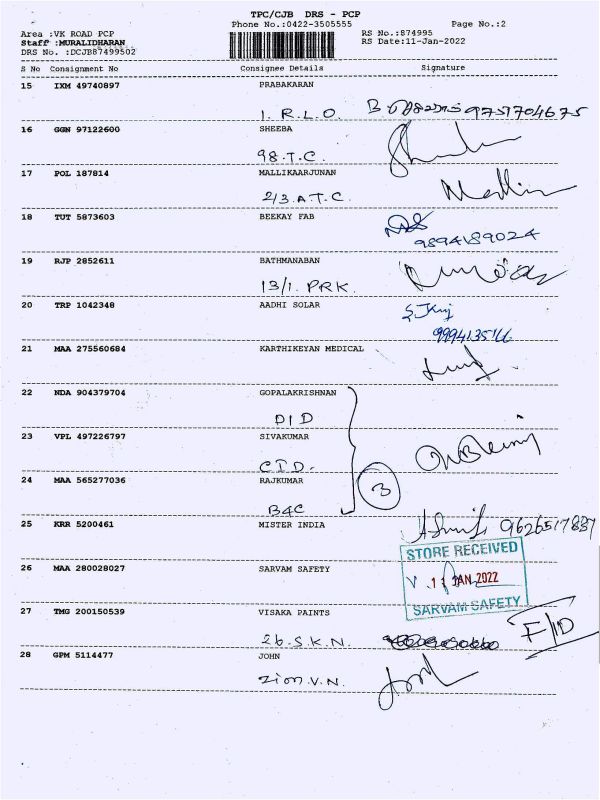 TPC/CJB DRS - PCP
Phone No.:0422-3505555 Page No.:2
Area :VK ROAD PCP RS No.:874995
Staff :MURALIDHARAN RS Date:11-Jan-2022
DRS No. :DCJB87499502
S No Consignment No Consignee Details Signature
15 IXM 49740897 PRABAKARAN
1. R.L.O. 9751704675
16 GGN 97122600 SHEEBA
98.T.C.
17 POL 187814 MALLIKAARJUNAN
2/3.A.T.C.
18 TUT 5873603 BEEKAY FAB
9894189024
19 RJP 2852611 BATHMANABAN
13/1. PRK.
20 TRP 1042348 AADHI SOLAR
21 MAA 275560684 KARTHIKEYAN MEDICAL
22 NDA 904379704 GOPALAKRISHNAN
DID
23 VPL 497226797 SIVAKUMAR
CID.
24 MAA 565277036 RAJKUMAR
3
B4C
25 KRR 5200461 MISTER INDIA
STORE RECEIVED
26 MAA 280028027 SARVAM SAFETY
JAN 2022
SARVAM SAFETY
27 TMG 200150539 VISAKA PAINTS
26.S.K.N. F/D
28 GPM 5114477 JOHN
Zion.V.N.